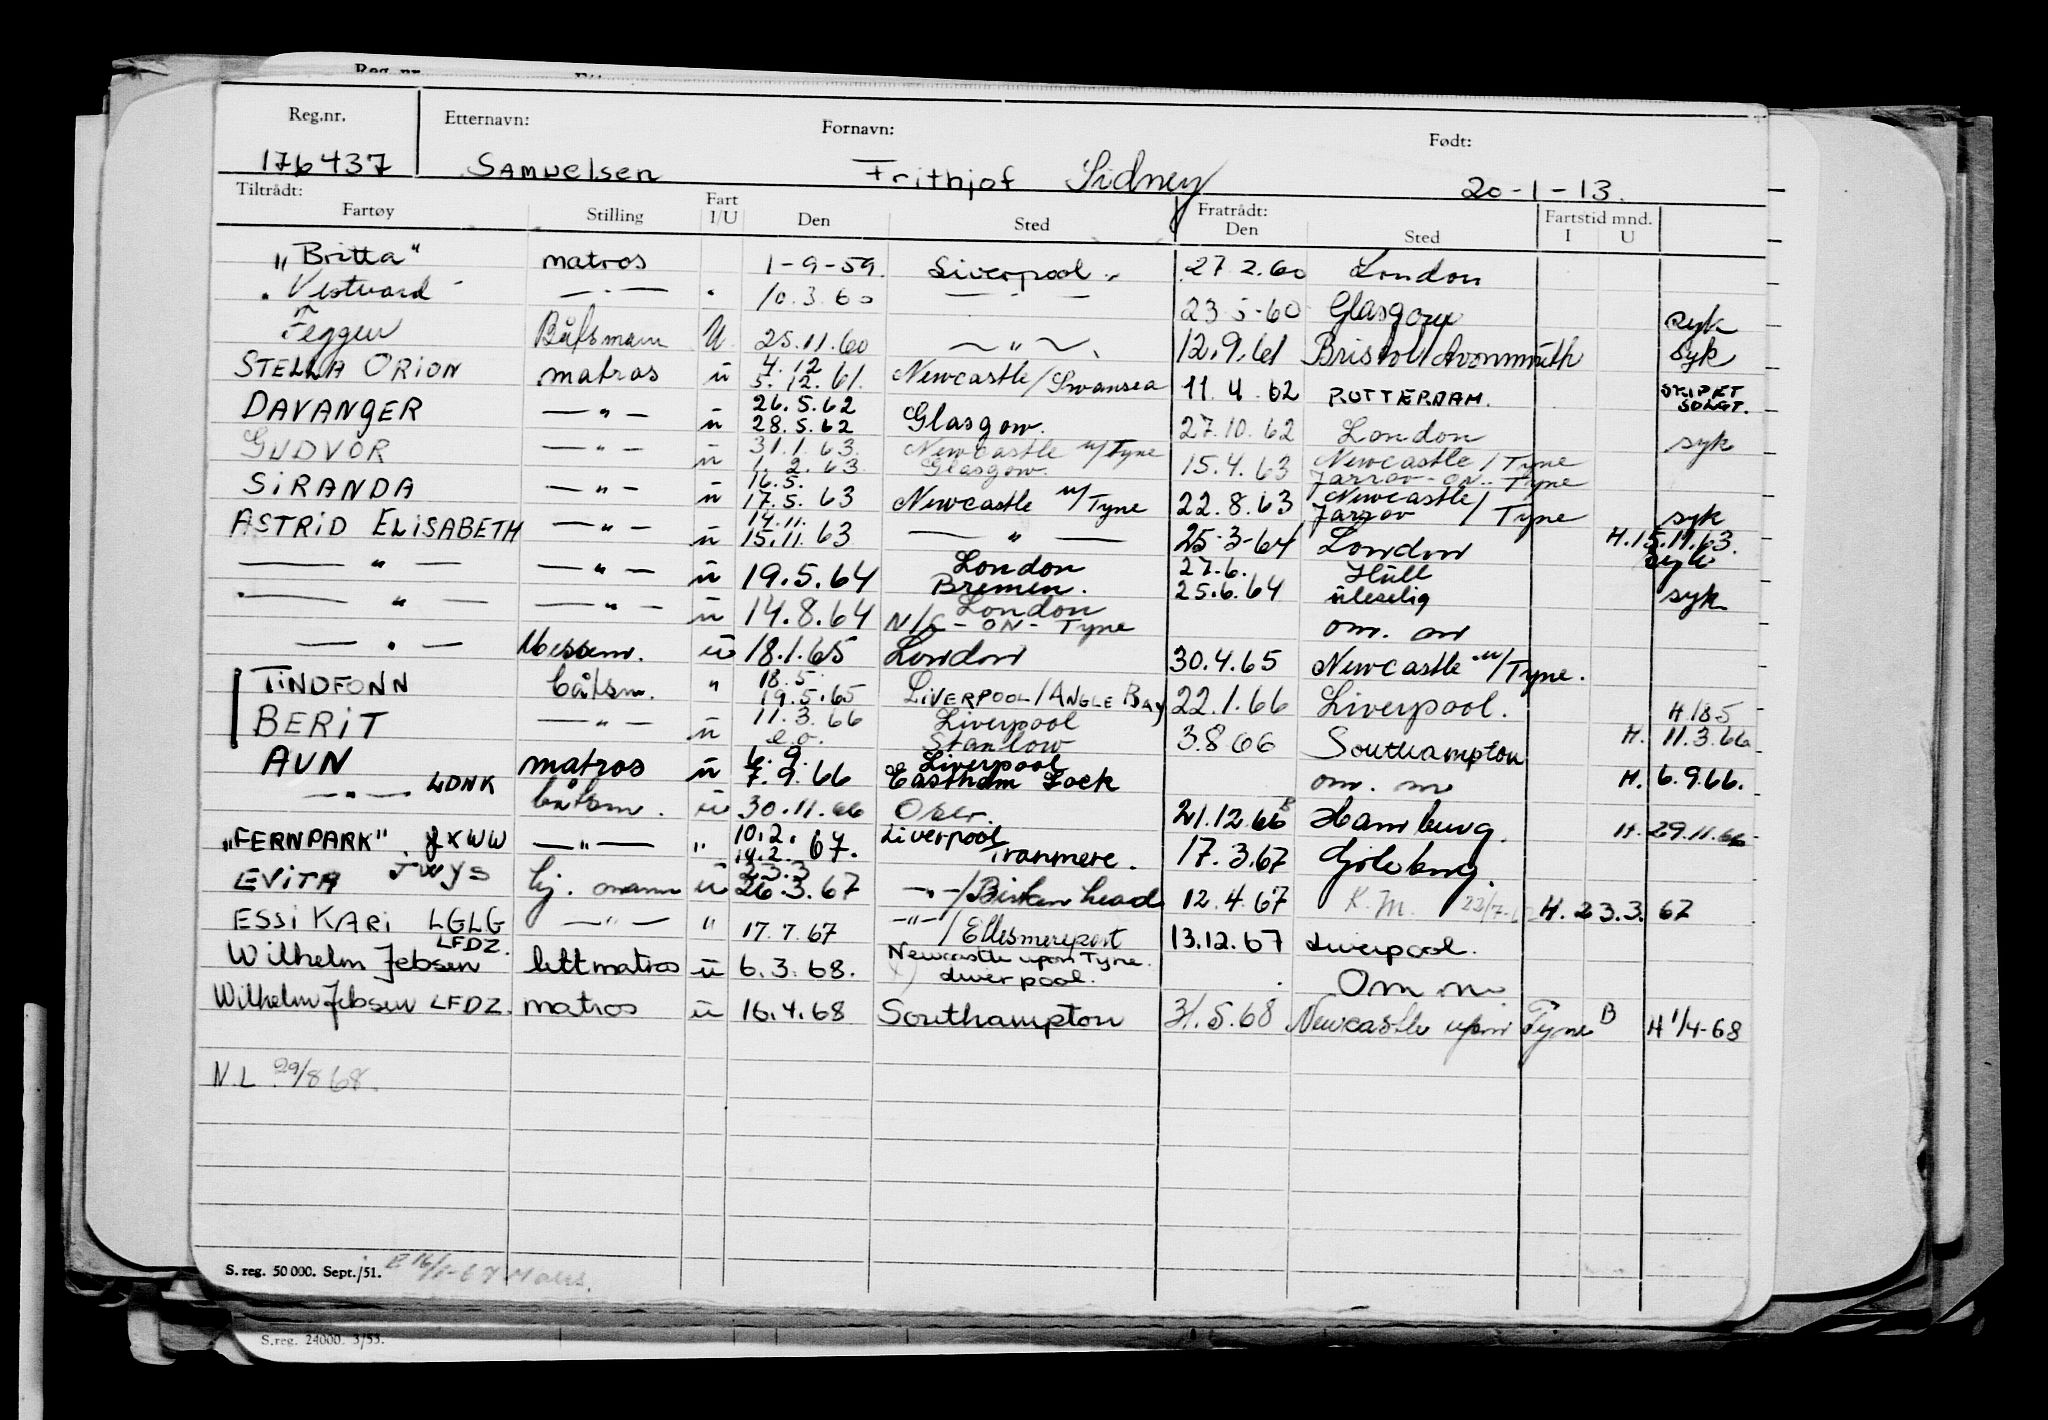 Reg.nr. Etternavn: Fornavn: Født:
176437 Samuelsen Frithjof Sidney 20-1-13.
Tiltrådt: Fratrådt:
Fartøy Stilling Fart I/U Den Sted Den Sted Fartstid mnd. I U
"Britta" matros 1-9-59. Liverpool 27.2.60 London
Vestvard — " — 10.3.60 — " — 23-5-60 Glasgow syk
Feggen Båtsmann U 25.11.60 — " — 12.9.61 Bristol/Avonmouth syk
STELLA ORION matros u 4.12 5.12.61. Newcastle/Swansea 11.4.62 ROTTERDAM. SKIPET SOLGT.
DAVANGER — " — u 26.5.62 28.5.62 Glasgow. 27.10.62 London syk
GUDVOR — " — u 31.1.63. 1.2.63 Newcastle u/Tyne Glasgow. 15.4.63 Newcastle/Tyne Jarrov-on-Tyne
SIRANDA — " — u 16.5. 17.5.63 Newcastle u/Tyne 22.8.63 Newcastle/Jarrov/Tyne syk
ASTRID ELISABETH — " — u 14.11. 15.11.63 — " — 25-3-64 London H.15.11.63. syk
— " — — " — u 19.5.64 London Bremen. 27.6. 25.6.64 Hull uleselig syk
— " — — " — u 14.8.64 London N/C-ON-Tyne om. m
— " — Messem. u 18.1.65 London 30.4.65 Newcastle u/Tyne.
TINDFONN båtsm. " 18.5. 19.5.65 LIVERPOOL/ANGLE BAY 22.1.66 Liverpool. H.18.5
BERIT — " — u 11.3.66 e.o. Liverpool Stanlow 3.8.66 Southampton H. 11.3.66
AUN matros u 6.9. 7.9.66 Liverpool Eastham Lock om. m H. 6.9.66.
— " — LDNK båtsm. u 30.11.66 Oslo. 21.12.66 B Hamburg. H. 29.11.66
"FERNPARK". JXWW — " — " 10.2. 14.2. 67. Liverpool Tranmere. 17.3.67 Gøteborg.
EVITA JWYS hj. omann u 23.3 26.3.67 — " —/Birkenhead 12.4.67 K.M. H.23.3.67
ESSI KARI LGLG — " — " 17.7.67 — " —/Ellesmereport 13.12.67 Liverpool.
Wilhelm Jebsen LFDZ. lettmatros u 6.3.68. Newcastle upon Tyne. Liverpool. Om m.
Wilhelm Jebsen LFDZ. matros u 16.4.68 Southampton 31.5.68 Newcastle upon Tyne B H 1/4-68
N.L 29/8 68.
S. reg. 50 000. Sept./51.
S.reg. 24000. 3/53.